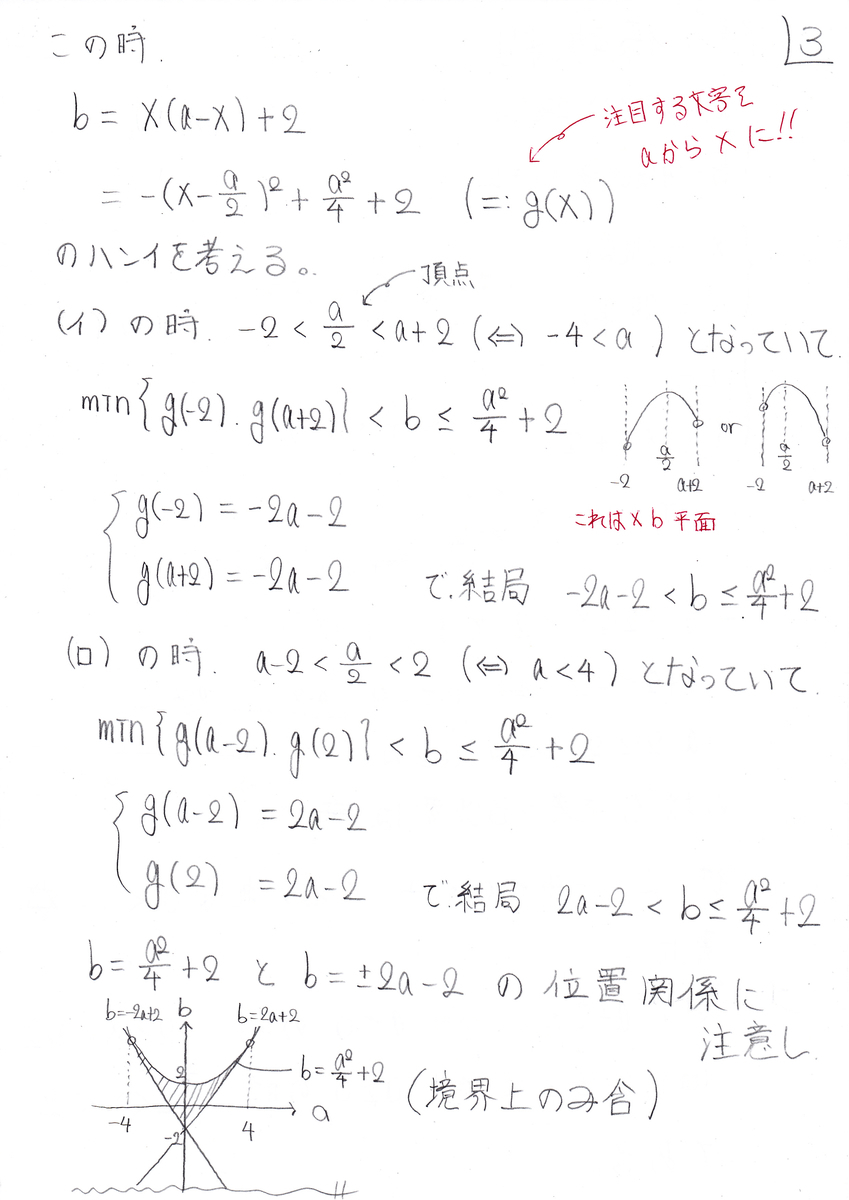 3
この時.
b = x(a-x)+2
注目する文字を
aからxに!!
= -(x-a/2)² + a²/4 + 2 (=: g(x))
のハンイを考える。
頂点
(イ) の時. -2 < a/2 < a+2 (⇔ -4 < a) となっていて.
min{g(-2). g(a+2)} < b ≤ a²/4 + 2
or
-2 a/2 a+2 -2 a/2 a+2
これは x b 平面
g(-2) = -2a-2
g(a+2) = -2a-2 で.結局 -2a-2 < b ≤ a²/4+2
(ロ) の時. a-2 < a/2 < 2 (⇔ a < 4) となっていて.
min{g(a-2). g(2)} < b ≤ a²/4 + 2
g(a-2) = 2a-2
g(2) = 2a-2 で.結局 2a-2 < b ≤ a²/4+2
b = a²/4 + 2 と b = ±2a-2 の位置関係に
注意し.
b=-2a+2 b b=2a+2
2
b = a²/4 + 2
(境界上のみ含)
-4 4 a
-2